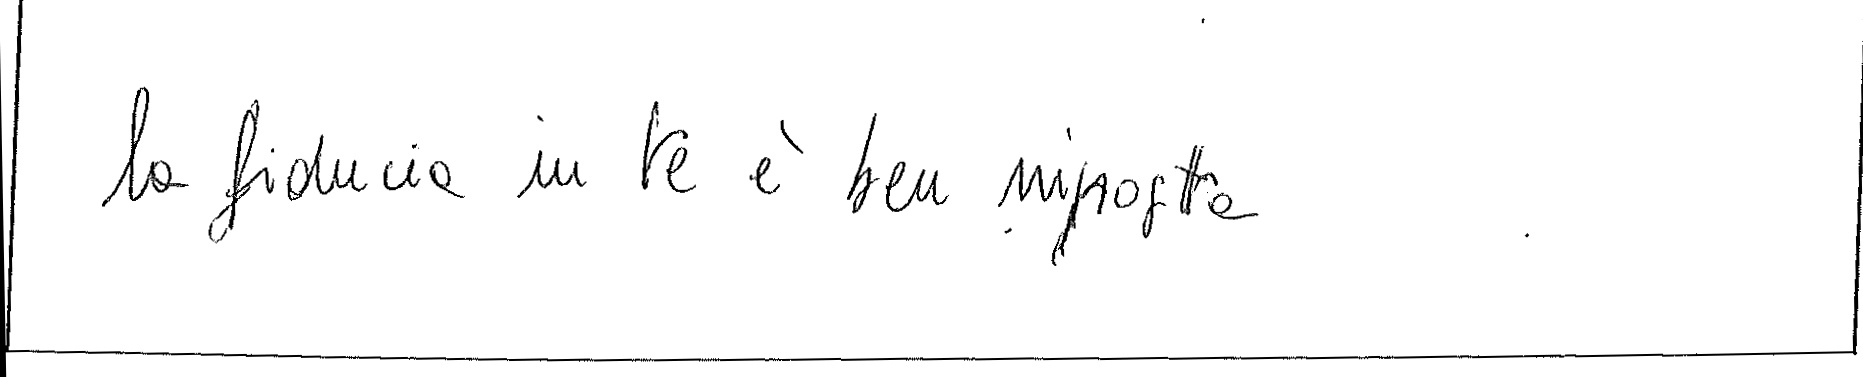 la fiducia in te è ben riposta